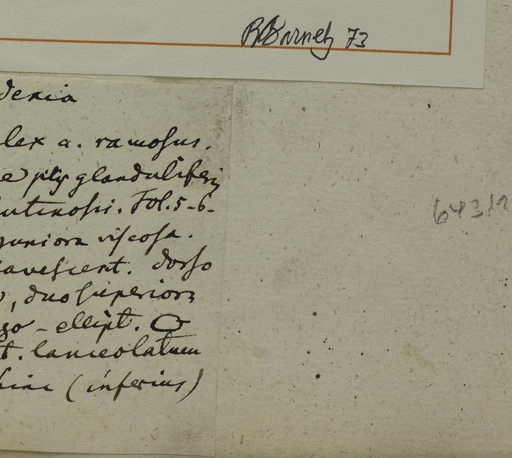 RBarneby 73
denia
lex a. ramosus.
e pilis glanduliferis
lutinosi. Fol. 5-6-
juniora viscosa.
lavescent. dorso
, duo superiora
go - ellipt.
t. lanceolatum
(inferius)
6431